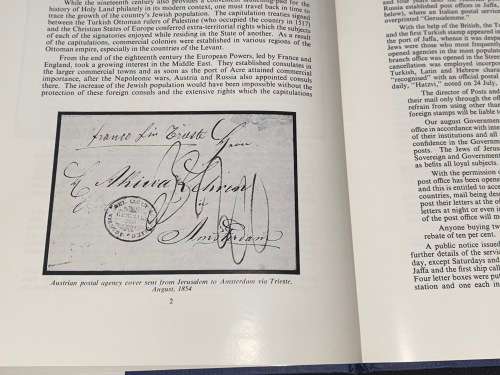 While the nineteenth century also provided a
history of Holy Land philately in its modern context, one must travel back in time to
trace the growth of the country's Jewish population. The capitulation treaties signed
between the Turkish Ottoman rulers of Palestine (who occupied the country in 1517)
and the Christian States of Europe conferred extra-territorial rights which the subjects
of each of the signatories enjoyed while residing in the State of another. As a result
of the capitulations, commercial colonies were established in various regions of the
Ottoman empire, especially in the countries of the Levant.
From the end of the eighteenth century the European Powers, led by France and
England, took a growing interest in the Middle East. They established consulates in
the larger towns and as soon as the port of Acre attained commercial
importance, after the Napoleonic wars, Austria and Russia also appointed consuls
there. The increase of the Jewish population would have been impossible without the
protection of these foreign consuls and the extensive rights which the capitulations
franco Trieste
Amsterdam
Austrian postal agency cover sent from Jerusalem to Amsterdam via Trieste,
August, 1854
2
Russia established post offices in Jaffa,
below), where an Italian postal service
overprinted "Gerusalemme".
With the help of the British, the
and the first Turkish stamp appeared in
the port of Jaffa, whence it was
Jews were those who most
opened agencies in the most
branch office was opened in the Street
cancellation was employed
Turkish, Latin and Hebrew
"recognised" with an official postal
daily, "Hatzvi," noted on 24 July,
The director of Posts and
their mail only through the
refrain from using other than
foreign stamps will be liable to
Our august Government
office in accordance with
of their institutions and all
confidence in the Government
posts. The Jews of Jerusal
Sovereign and Government
as befits all loyal subjects.
With the permission of
post office has been opened
and this is entitled to accept
countries, mail being
post their letters at the
letters at night or even in
of the post office will
Anyone buying two
rebate of ten per cent.
A public notice issued
further details of the service
day, except Saturdays and
Jaffa and the first ship
Four letter boxes were put
station and one each in